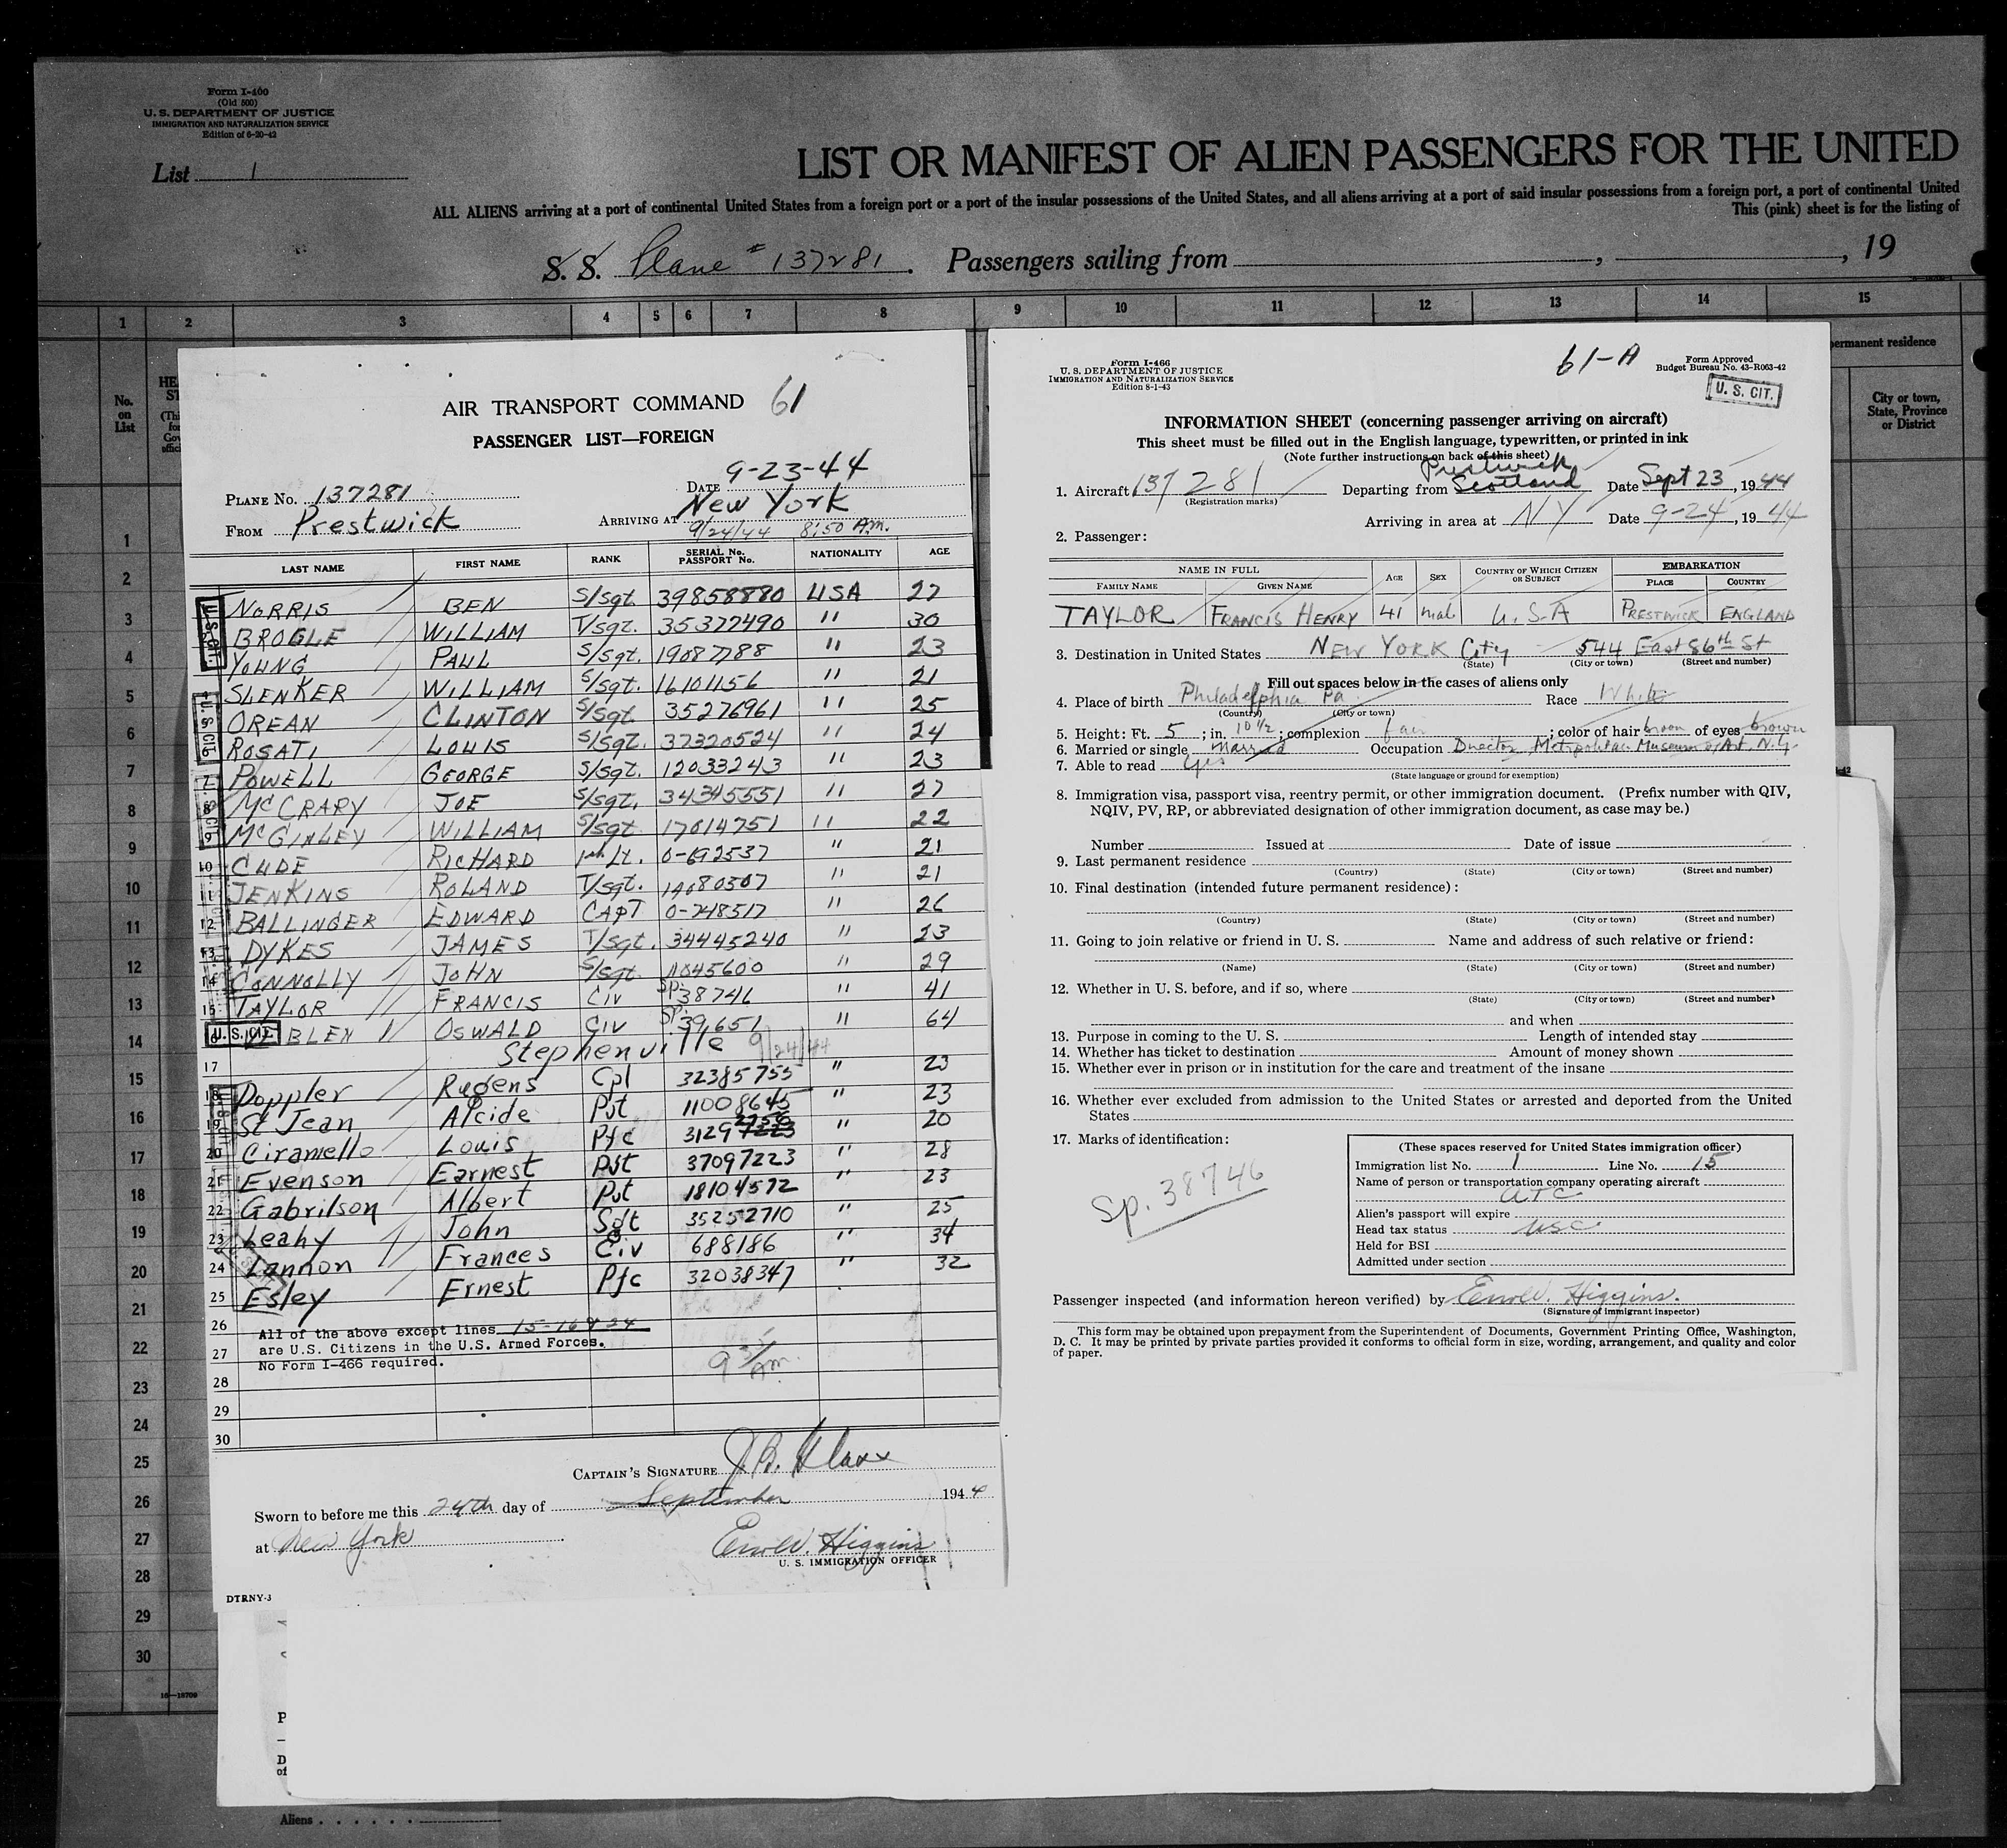 Form I-400
(Old 500)
U. S. DEPARTMENT OF JUSTICE
IMMIGRATION AND NATURALIZATION SERVICE
Edition of 6-20-42
List 1
LIST OR MANIFEST OF ALIEN PASSENGERS FOR THE UNITED
ALL ALIENS arriving at a port of continental United States from a foreign port or a port of the insular possessions of the United States, and all aliens arriving at a port of said insular possessions from a foreign port, a port of continental United
This (pink) sheet is for the listing of
S. S. Plane # 137281. Passengers sailing from , , 19
1 2 3 4 5 6 7 8 9 10 11 12 13 14 15
No. on List
ermanent residence
City or town, State, Province or District
1
2
3
4
5
6
7
8
9
10
11
12
13
14
15
16
17
18
19
20
21
22
23
24
25
26
27
28
29
30
16—18709
Aliens
AIR TRANSPORT COMMAND 61
PASSENGER LIST—FOREIGN
PLANE No. 137281 DATE 9-23-44
FROM Prestwick ARRIVING AT New York
9/24/44 8:50 AM.
LAST NAME FIRST NAME RANK SERIAL No. PASSPORT No. NATIONALITY AGE
NORRIS BEN S/Sgt. 39858880 USA 27
BROGLE WILLIAM T/Sgt. 35377490 " 30
YOUNG PAUL S/Sgt. 19087788 " 23
SLENKER WILLIAM S/Sgt. 16101156 " 21
OREAN CLINTON S/Sgt. 35276961 " 25
ROSATI LOUIS S/Sgt. 37320524 " 24
7 POWELL GEORGE S/Sgt. 12033243 " 23
8 MCCRARY JOE S/Sgt. 34345551 " 27
9 MCGINLEY WILLIAM S/Sgt. 17014751 " 22
10 CUDE RICHARD 1st Lt. 0-692537 " 21
11 JENKINS ROLAND T/Sgt. 14080507 " 21
12 BALLINGER EDWARD CAPT 0-748517 " 26
13 DYKES JAMES T/Sgt. 34445240 " 23
14 CONNOLLY JOHN S/Sgt. 11045600 " 29
15 TAYLOR FRANCIS CIV Sp. 38746 " 41
U. S. CIT. VEBLEN OSWALD CIV Sp. 39,651 " 64
17 Stephenville 9/24/44
18 Doppler Rugens Cpl 32385755 " 23
19 St Jean Alcide Pvt 11008645 " 23
20 Ciramello Louis Pfc 3129 7223 2756 " 20
21 Evenson Earnest Pvt 37097223 " 28
22 Gabrilson Albert Pvt 18104572 " 23
23 Leahy John Sgt 35252710 " 25
24 Lannon Frances Civ 688186 " 34
25 Esley Ernest Pfc 32038347 " 32
26 All of the above except lines 15-16 & 24
are U.S. Citizens in the U.S. Armed Forces.
27 No Form I-466 required.
28
29
30
CAPTAIN'S SIGNATURE
Sworn to before me this 24th day of September 1944
at New York
Higgins
U. S. IMMIGRATION OFFICER
DTRNY-3
Form I-466
U. S. DEPARTMENT OF JUSTICE
IMMIGRATION AND NATURALIZATION SERVICE
Edition 8-1-43
61-A
Form Approved
Budget Bureau No. 43-R063-42
U. S. CIT.
INFORMATION SHEET (concerning passenger arriving on aircraft)
This sheet must be filled out in the English language, typewritten, or printed in ink
(Note further instructions on back of this sheet)
1. Aircraft 137281 Departing from Prestwick Scotland Date Sept 23, 1944
(Registration marks)
Arriving in area at NY Date 9-24, 1944
2. Passenger:
NAME IN FULL AGE SEX COUNTRY OF WHICH CITIZEN OR SUBJECT EMBARKATION
FAMILY NAME GIVEN NAME PLACE COUNTRY
TAYLOR FRANCIS HENRY 41 mal U.S.A PRESTWICK ENGLAND
3. Destination in United States NEW YORK City 544 East 86th St
(State) (City or town) (Street and number)
Fill out spaces below in the cases of aliens only
4. Place of birth Philadelphia Pa Race White
(Country) (City or town)
5. Height: Ft. 5 ; in. 10 1/2 ; complexion fair ; color of hair brown of eyes brown
6. Married or single Married Occupation Director, Metropolitan Museum of Art, N.Y.
7. Able to read yes
(State language or ground for exemption)
8. Immigration visa, passport visa, reentry permit, or other immigration document. (Prefix number with QIV,
NQIV, PV, RP, or abbreviated designation of other immigration document, as case may be.)
Number Issued at Date of issue
9. Last permanent residence
(Country) (State) (City or town) (Street and number)
10. Final destination (intended future permanent residence):
(Country) (State) (City or town) (Street and number)
11. Going to join relative or friend in U. S. Name and address of such relative or friend:
(Name) (State) (City or town) (Street and number)
12. Whether in U. S. before, and if so, where
(State) (City or town) (Street and number)
and when
13. Purpose in coming to the U. S. Length of intended stay
14. Whether has ticket to destination Amount of money shown
15. Whether ever in prison or in institution for the care and treatment of the insane
16. Whether ever excluded from admission to the United States or arrested and deported from the United
States
17. Marks of identification:
Sp. 38746
(These spaces reserved for United States immigration officer)
Immigration list No. 1 Line No. 15
Name of person or transportation company operating aircraft
ATC
Alien's passport will expire
Head tax status USC
Held for BSI
Admitted under section
Passenger inspected (and information hereon verified) by Higgins.
(Signature of immigrant inspector)
This form may be obtained upon prepayment from the Superintendent of Documents, Government Printing Office, Washington,
D. C. It may be printed by private parties provided it conforms to official form in size, wording, arrangement, and quality and color
of paper.